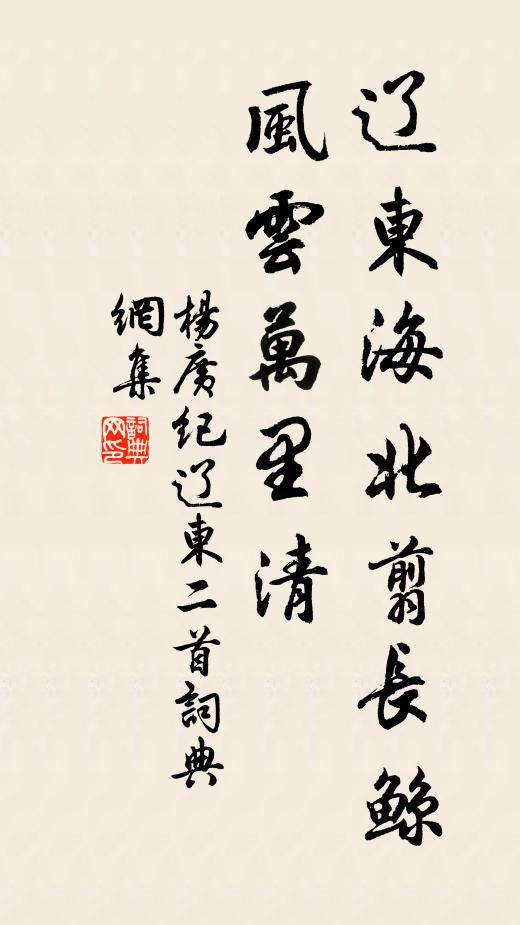 辽東海北翦長鲸
風雲萬里清
楊廣纪辽東二首詞典
網集
詞典网印